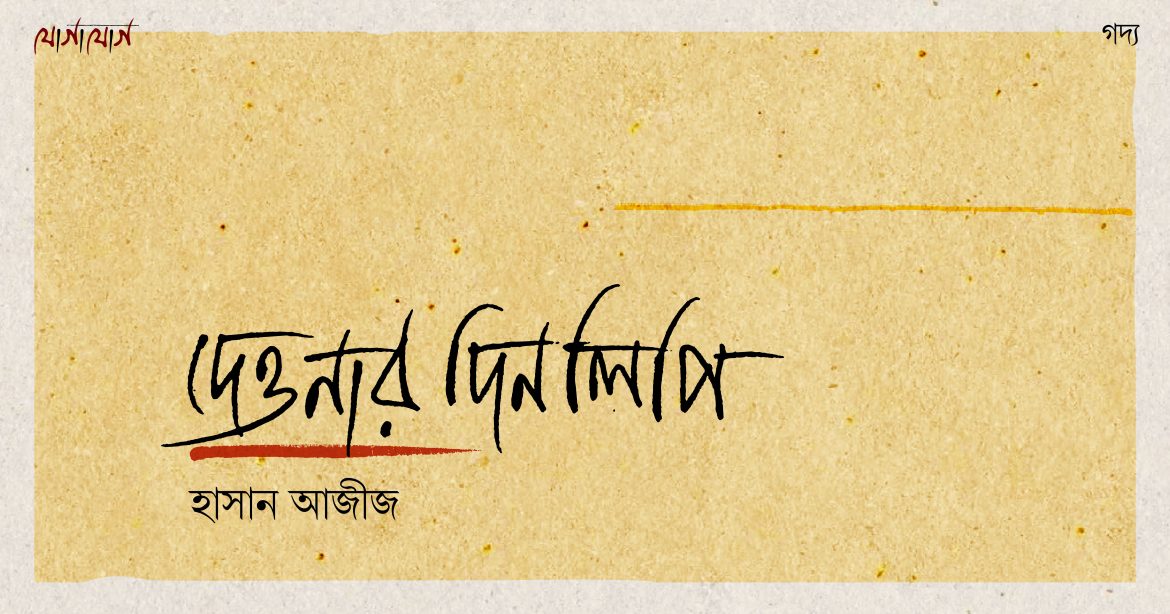 যোগাযোগ
গদ্য
দেওনার দিনলিপি
হাসান আজীজ